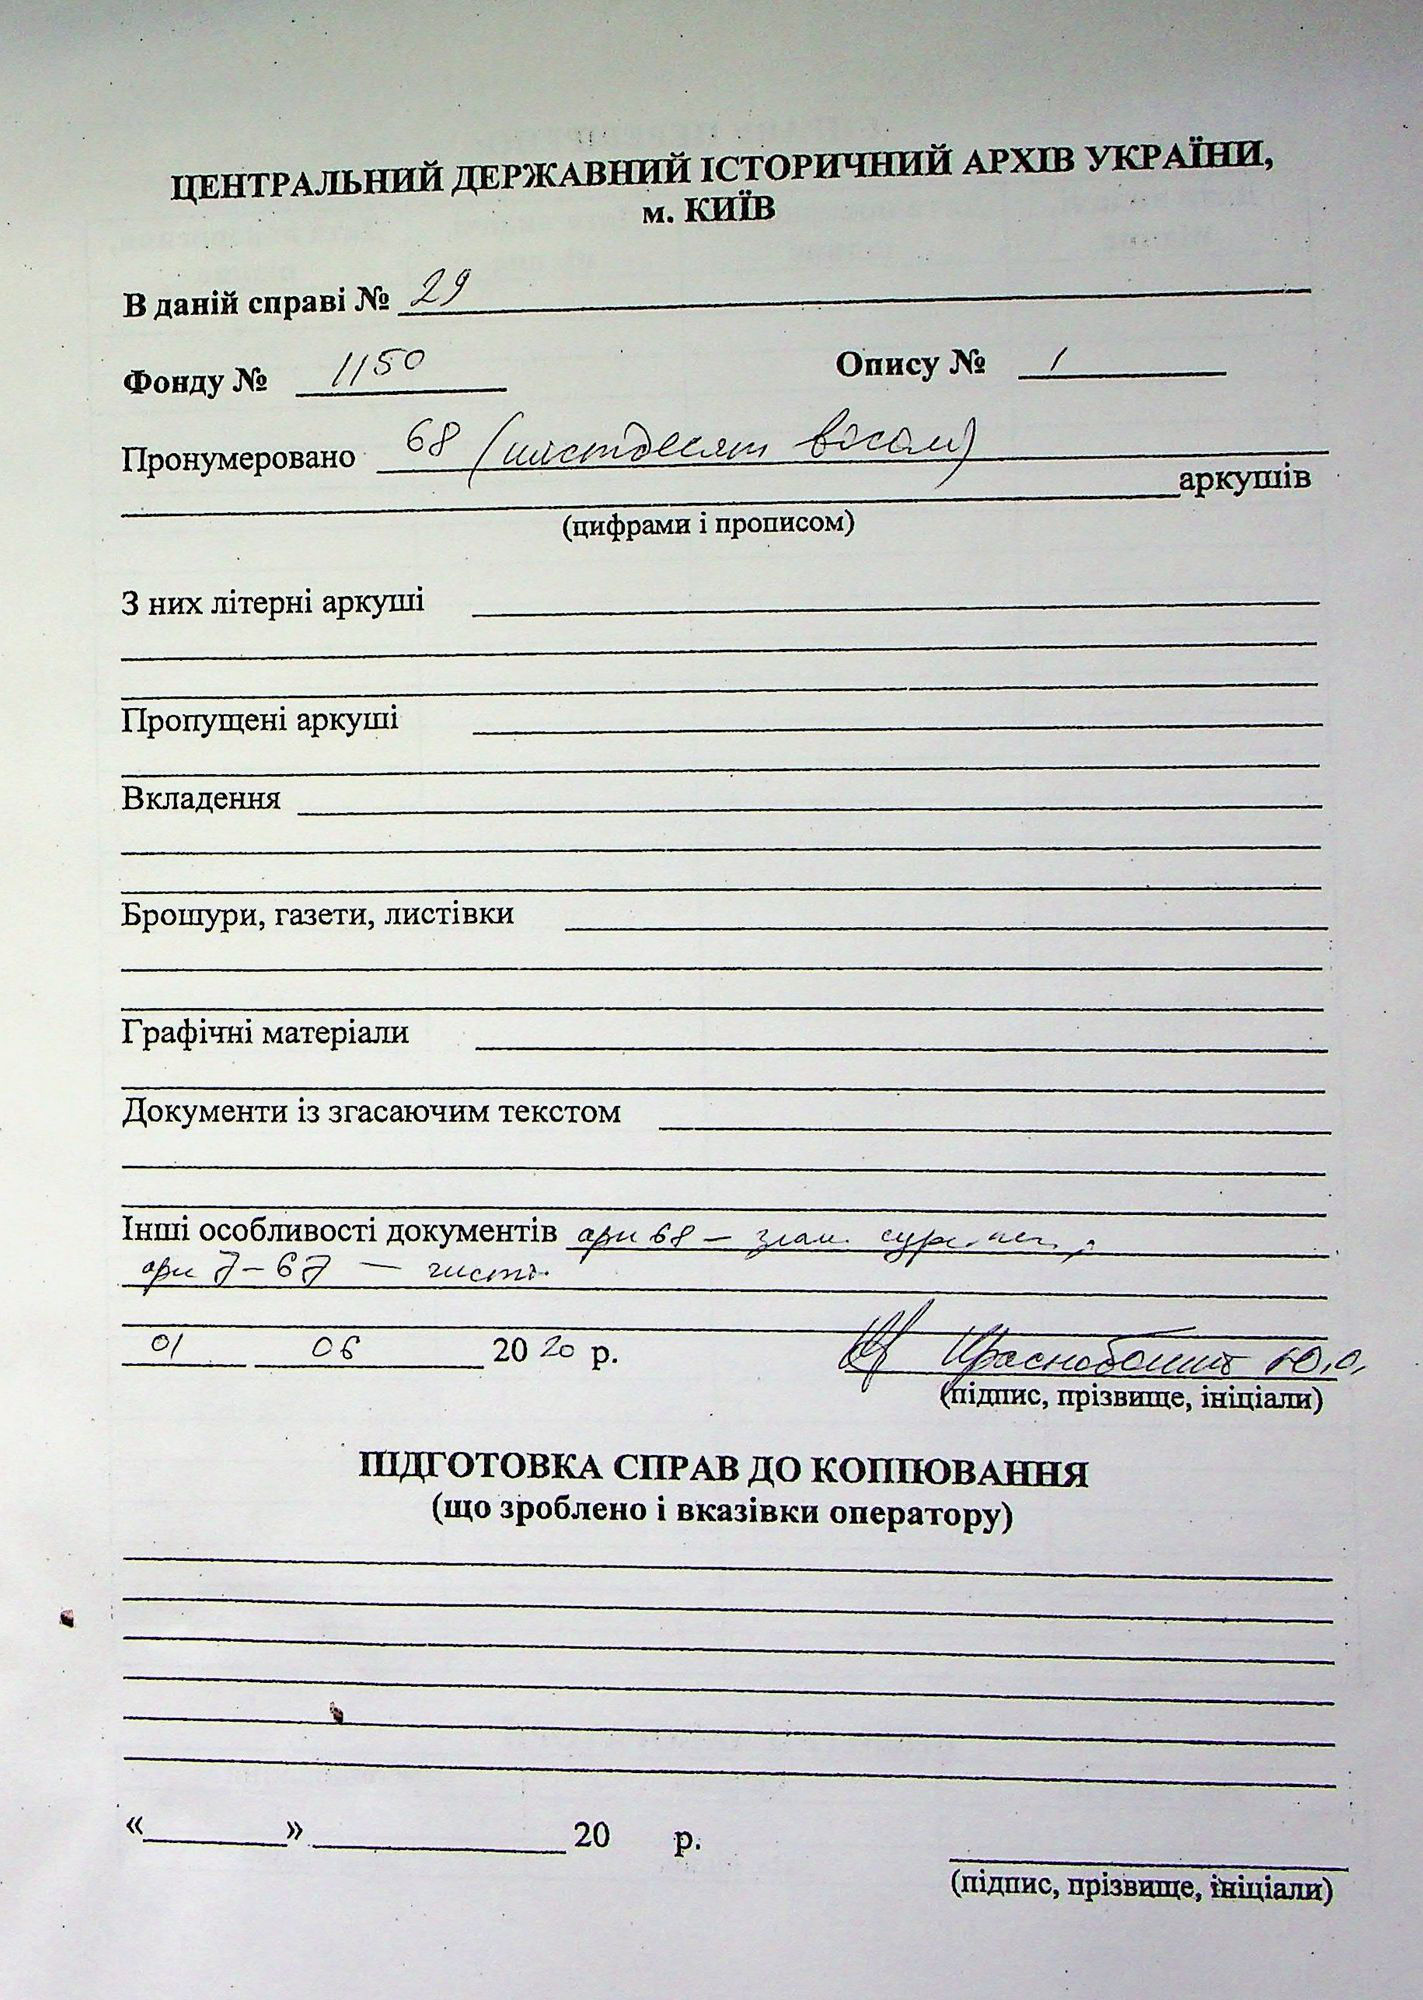 ЦЕНТРАЛЬНИЙ ДЕРЖАВНИЙ ІСТОРИЧНИЙ АРХІВ УКРАЇНИ,
м. КИЇВ
В даній справі № 29
Фонду № 1150 Опису № 1
Пронумеровано 68 (шістдесят вісім)
аркушів
(цифрами і прописом)
З них літерні аркуші
Пропущені аркуші
Вкладення
Брошури, газети, листівки
Графічні матеріали
Документи із згасаючим текстом
Інші особливості документів арк 68 –
арк 7–67 – чисті
01 06 2020 р. Ю.О.
(підпис, прізвище, ініціали)
ПІДГОТОВКА СПРАВ ДО КОПІЮВАННЯ
(що зроблено і вказівки оператору)
« » 20 р.
(підпис, прізвище, ініціали)